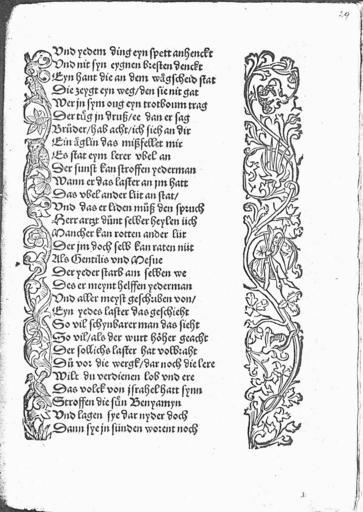 29
Vnd yedem ding eyn spett anhenckt
Vnd nit syn eygnen bresten denckt
Eyn hant die an dem wägscheid stat
Die zeygt eyn weg/den sie nit gat
Wer jn sym oug eyn trotboum trag
Der tüg jn druß/ee dan er sag
Brüder/hab acht/ich sich an dir
Ein äglin das mißfellet mir
Es stat eym lerer vbel an
Der sunst kan stroffen yederman
Wann er das laster an jm hatt
Das vbel ander lüt an stat/
Vnd das er liden müß den spruch
Herr artzt dünt selber heylen üch
Mancher kan rotten ander lüt
Der jm doch selb kan raten nüt
Als Gentilis vnd Mesue
Der yeder starb am selben we
Des er meynt helffen yederman
Vnd aller meyst geschriben von/
Eyn yedes laster das geschieht
So vil schynbarer man das sieht
So vil/als der wurt höher geacht
Der sollichs laster hat volbraht
Dü vor die wergk/dar noch die lere
Wilt du verdienen lob vnd ere
Das volck von jsrahel hatt synn
Stroffen die sün Benyamyn
Vnd lagen sye dar nyder doch
Dann sye jn sünden worent noch